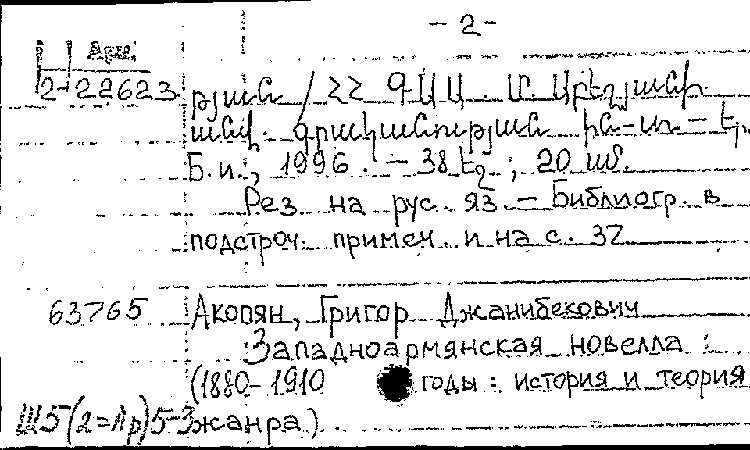 - 2 -
Арм.
2-22623
րյան / ՀՀ ԳԱԱ. Մ. Աբեղյանի
անվ. գրականության ին-տ. - Եր.
Б.и., 1996. - 38 էջ ; 20 սմ.
Рез. на рус. яз. - Библиогр. в
подстроч. примеч. и на с. 37
63765 Акопян, Григор Джанибекович
Западноармянская новелла :
(1880-1910 годы : история и теория
Ш5(2=Ар)5-3 жанра)